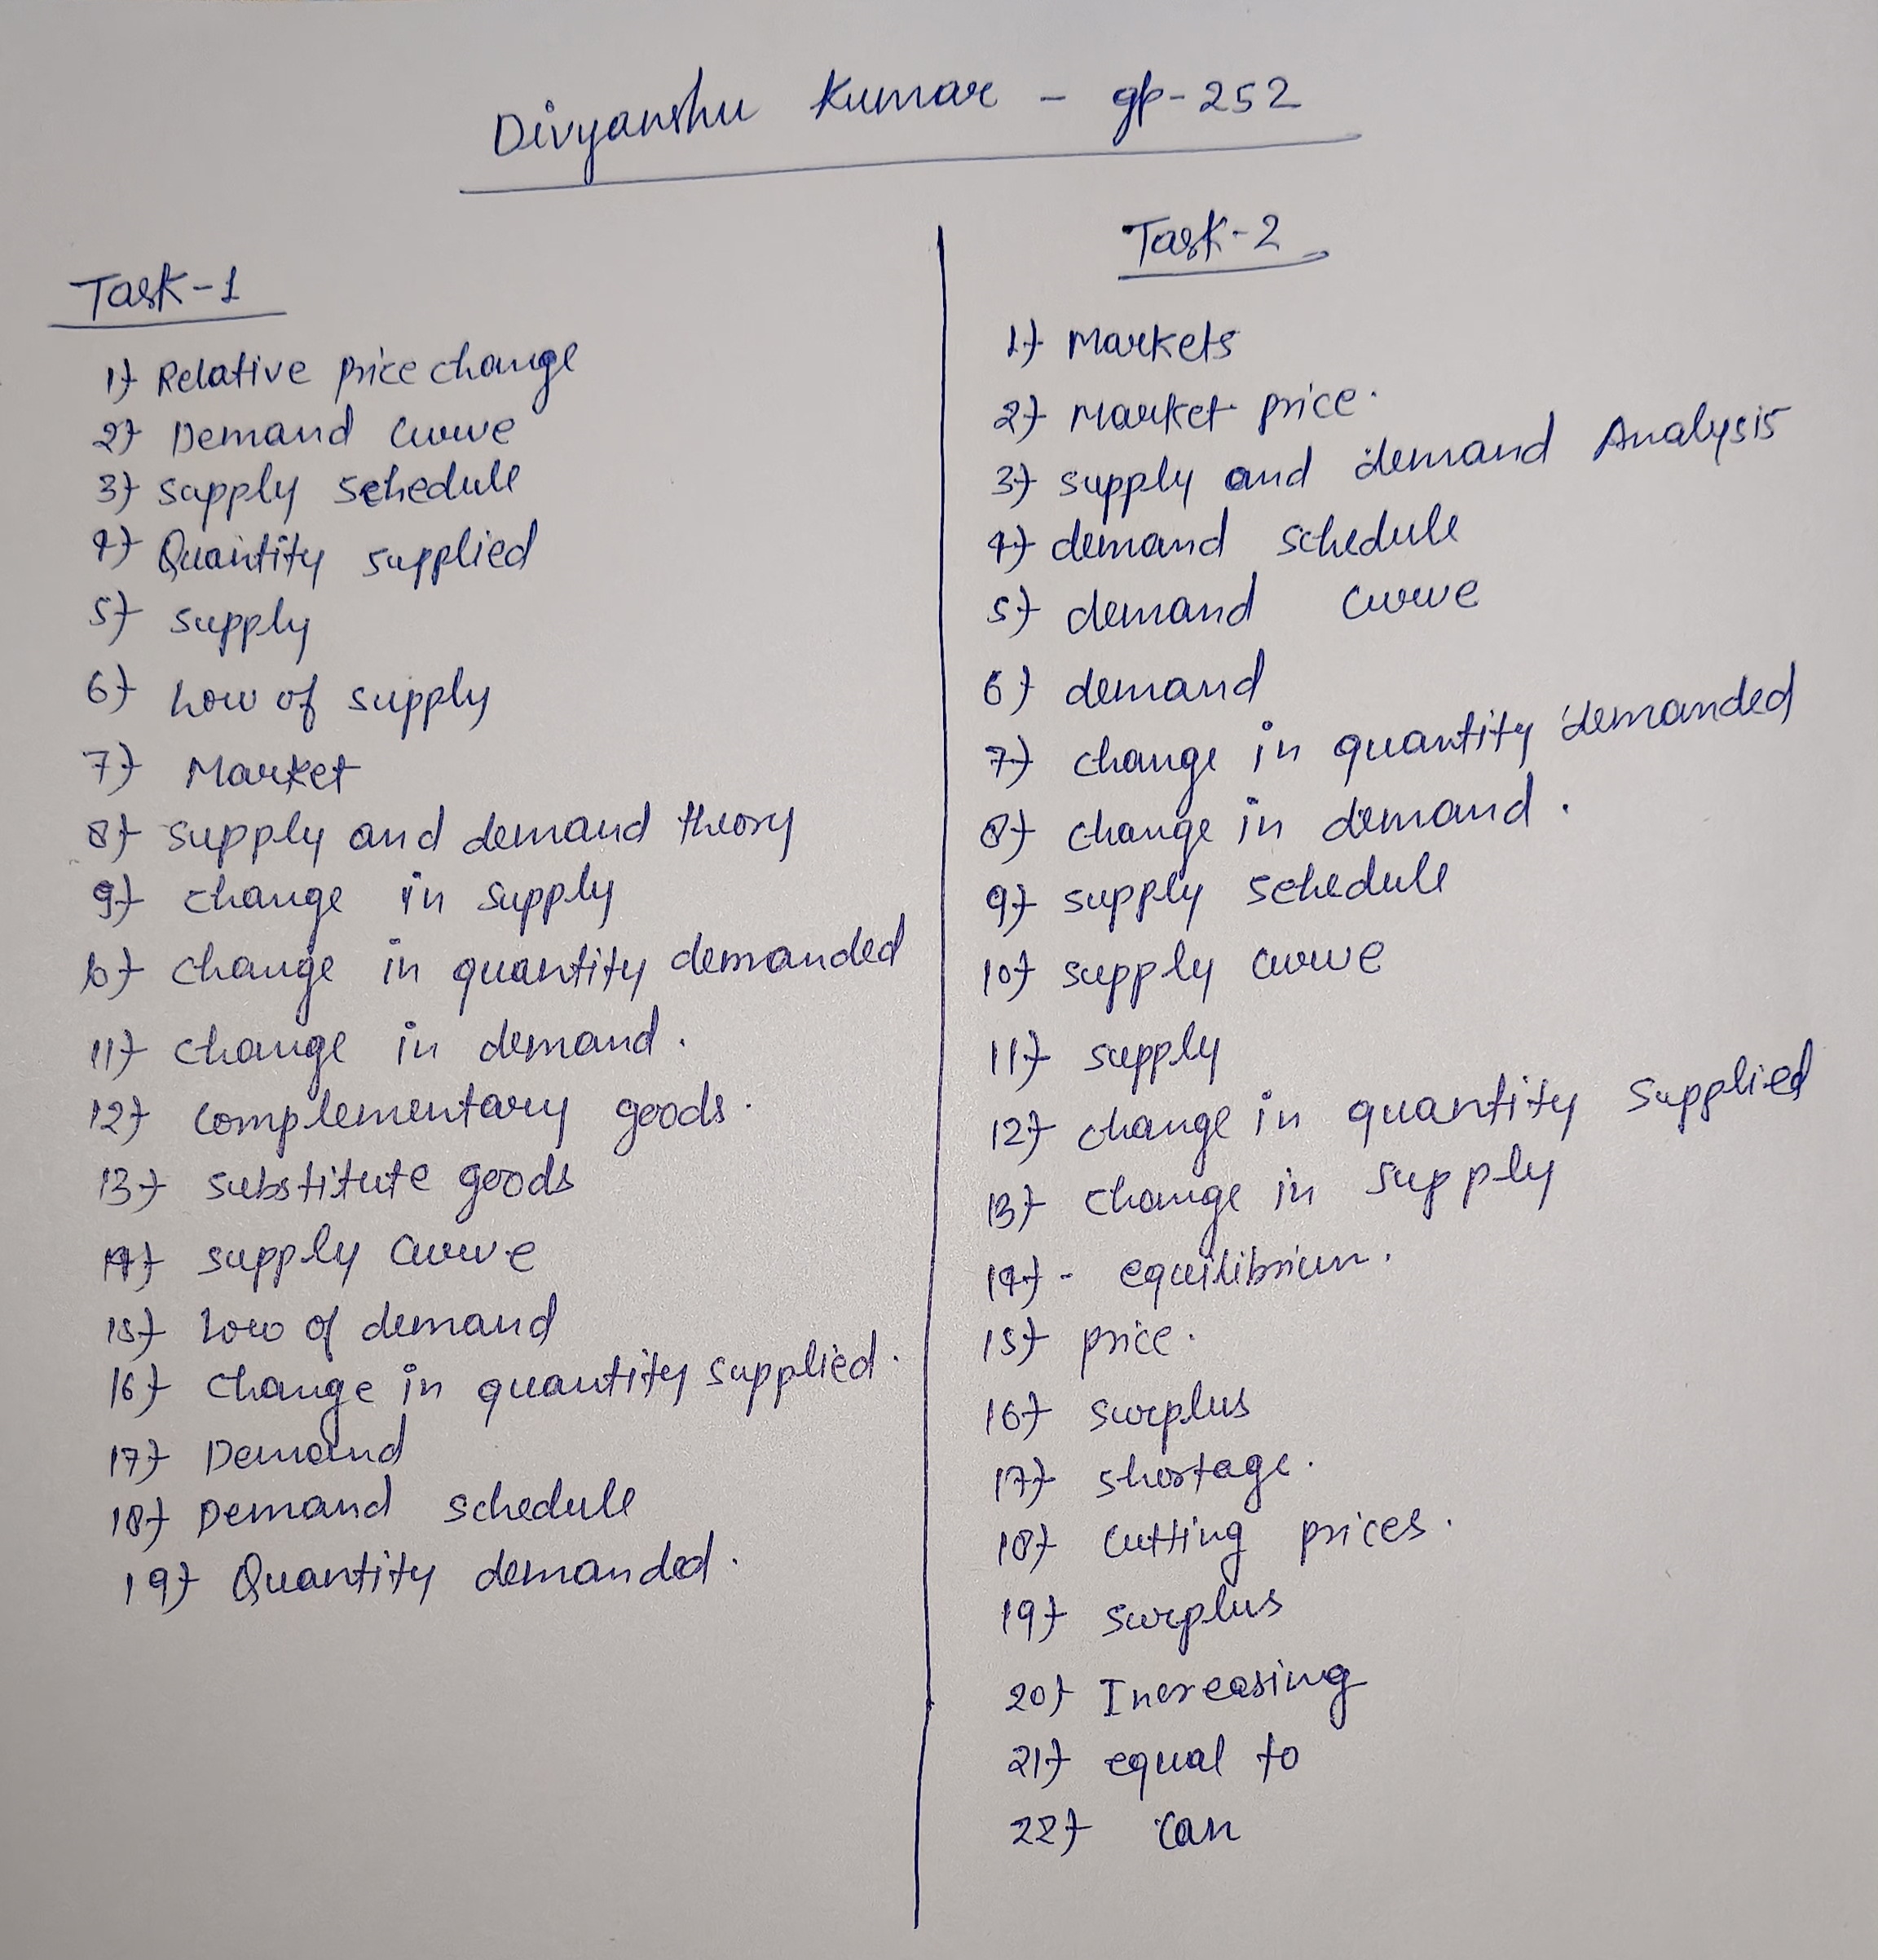 Divyanshu Kumar - gp-252
Task-1
1) Relative price change
2) Demand curve
3) supply schedule
4) Quantity supplied
5) supply
6) Low of supply
7) Market
8) supply and demand theory
9) change in supply
10) change in quantity demanded
11) change in demand.
12) complementary goods.
13) substitute goods
14) supply curve
15) Low of demand
16) change in quantity supplied.
17) Demand
18) Demand schedule
19) Quantity demanded.
Task-2
1) Markets
2) Market price.
3) supply and demand Analysis
4) demand schedule
5) demand curve
6) demand
7) change in quantity demanded
8) change in demand.
9) supply schedule
10) supply curve
11) supply
12) change in quantity supplied
13) change in supply
14) - equilibrium.
15) price.
16) surplus
17) shortage.
18) cutting prices.
19) surplus
20) Increasing
21) equal to
22) can